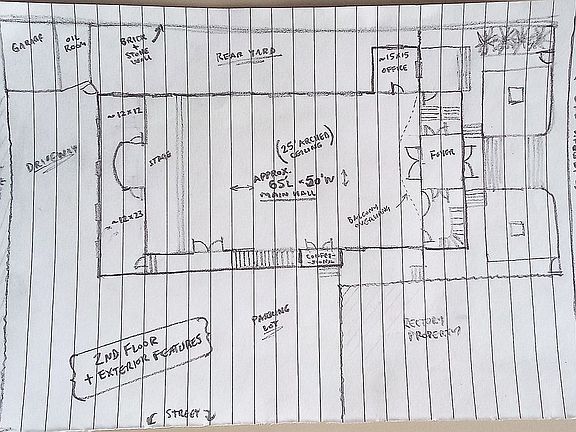 GARAGE
OIL
ROOM
BRICK
+
STONE
WALL
REAR YARD
~15x15
OFFICE
~12x12
DRIVEWAY
STAGE
(25' ARCHED
CEILING)
FOYER
APPROX.
65'L x 50'W
MAIN HALL
~12x23
BALCONY
OVERHANG
CONFES-
SIONAL
PARKING
LOT
RECTORY
PROPERTY
2ND FLOOR
+ EXTERIOR FEATURES
(STREET)